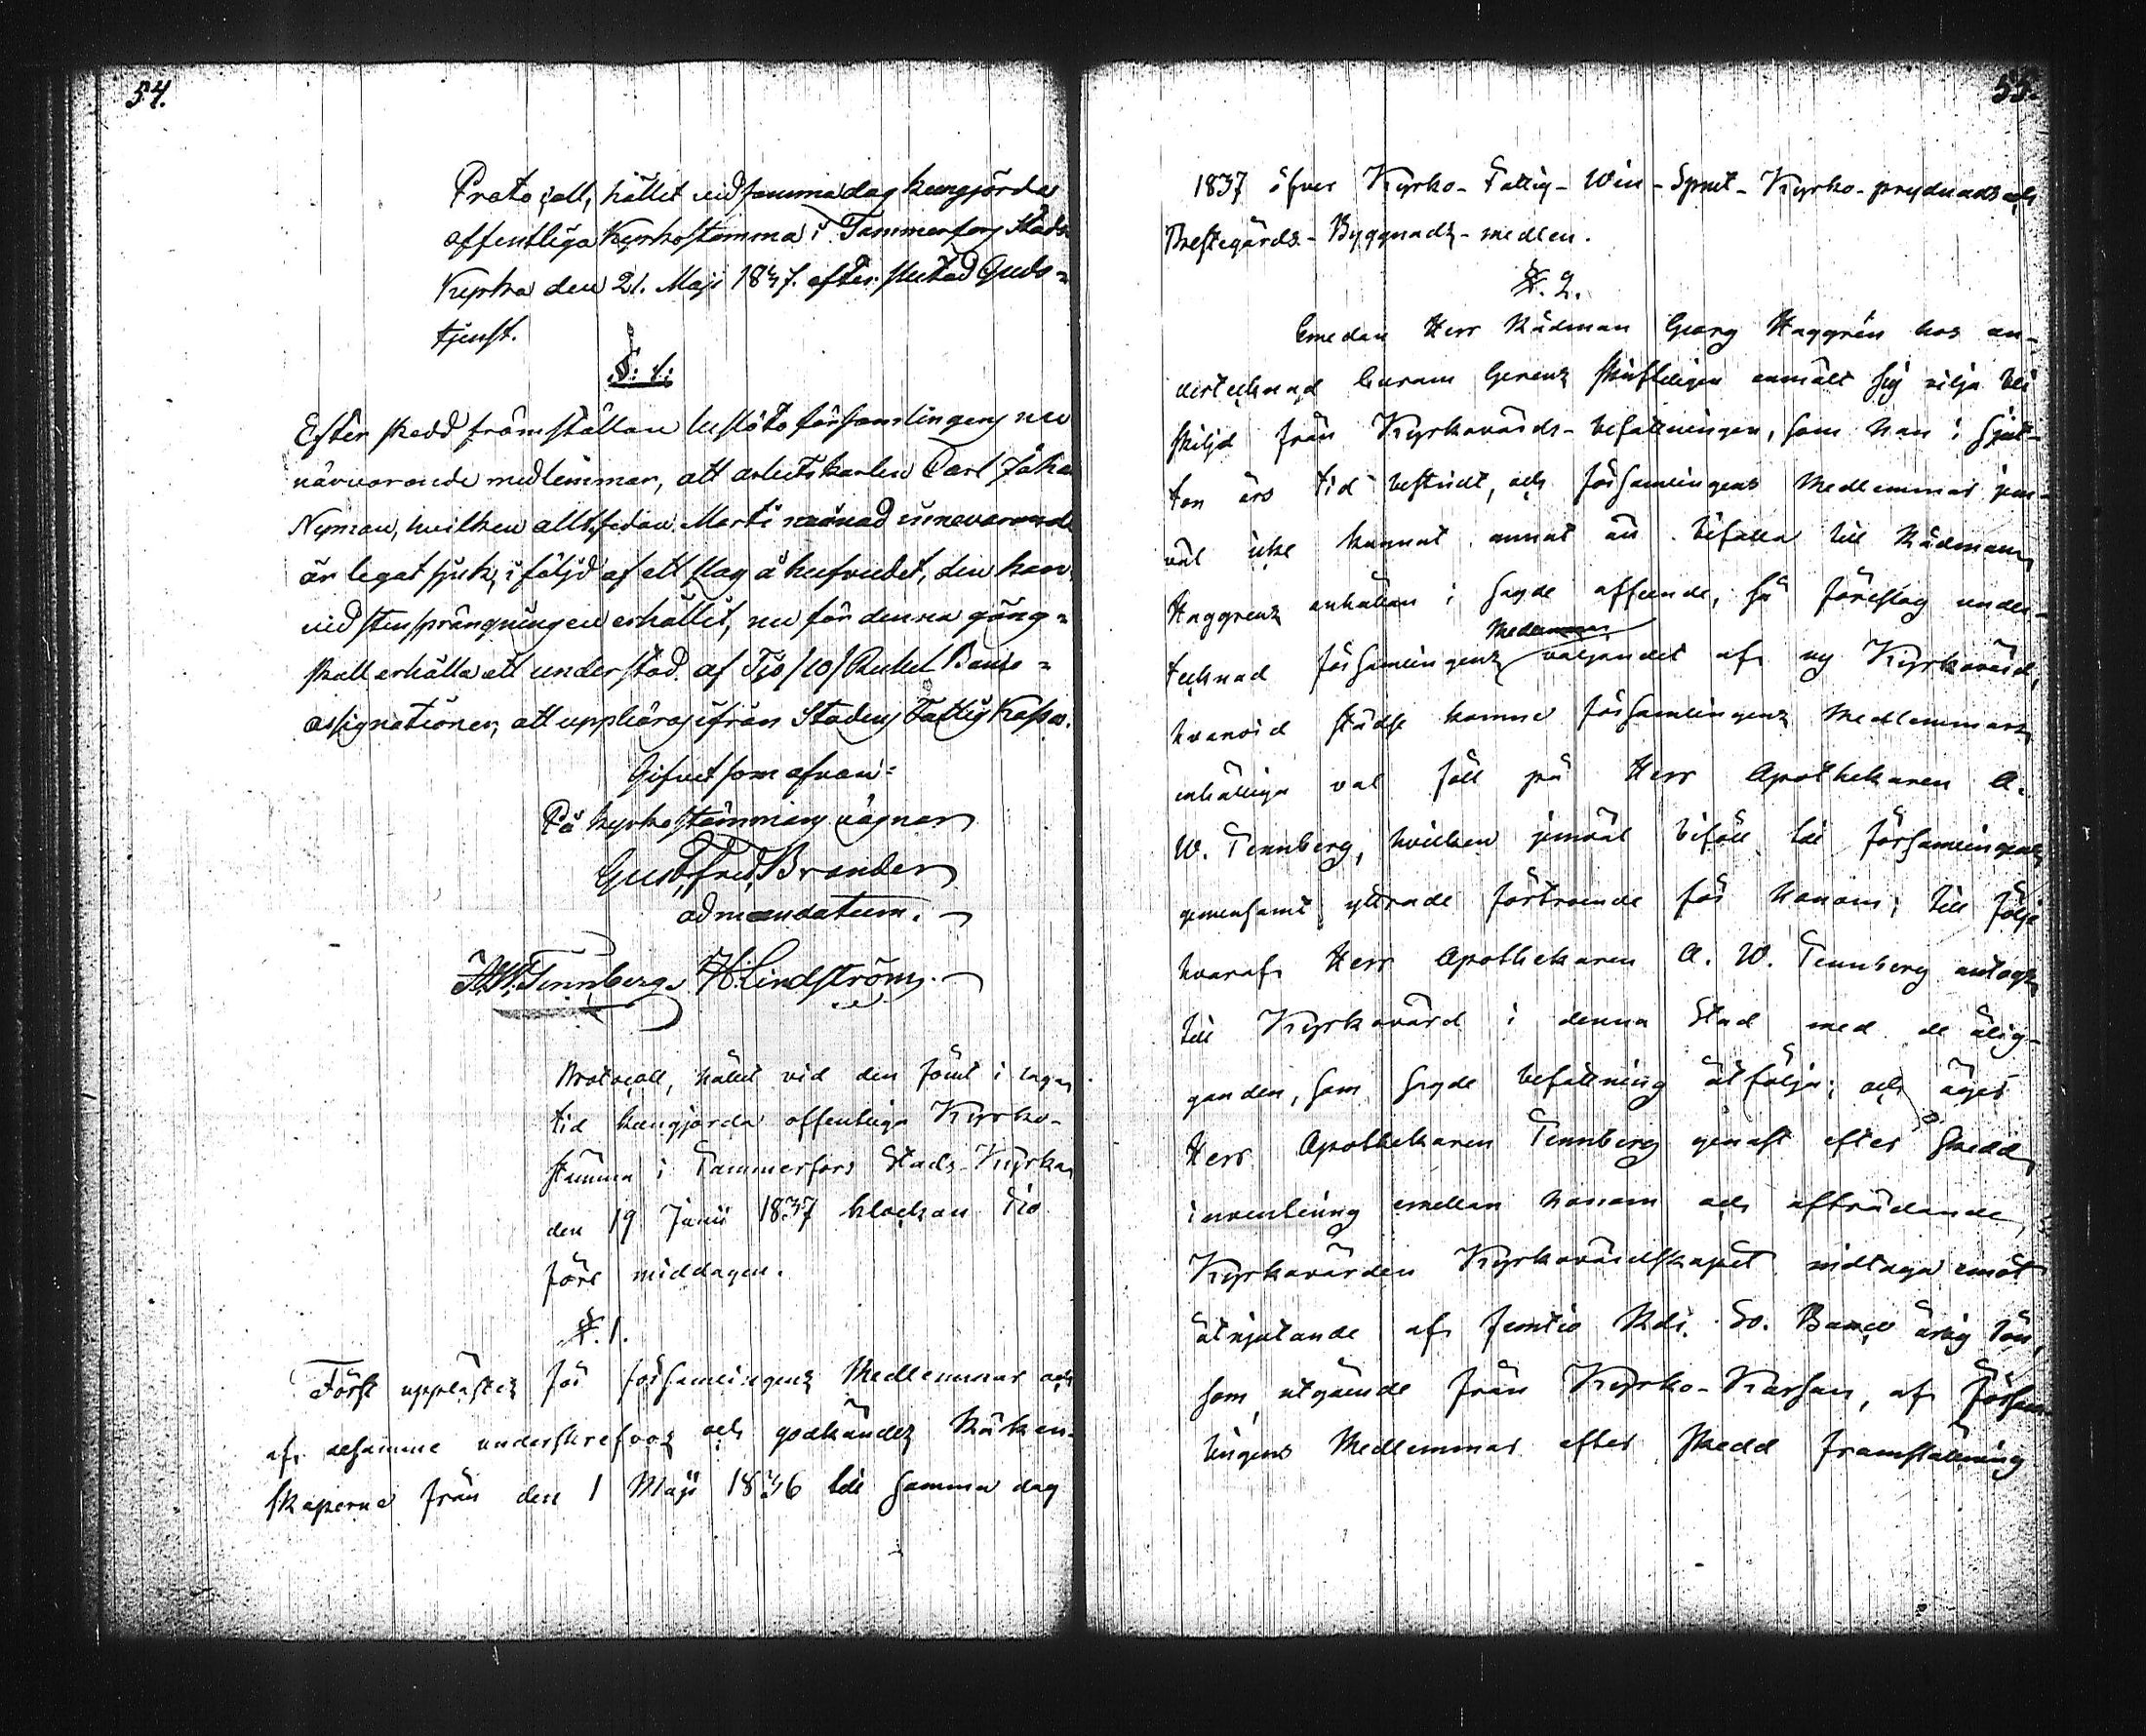 54.
Protocoll, hållet vid samma dag kungjorda
offentliga Kyrkostämma i Tammerfors Stads
Kyrka den 21. Maji 1837. efter slutad Guds-
tjenst.
§: 1:
Efter skedd framställan beslöto församlingens nu
närvarande medlemmar, att arbetskarlen Carl Johan
Nyman, hvilken allt sedan Martii månad innevarande
år legat sjuk, i följd af ett slag å hufvudet, den han
vid stensprängningen erhållit, nu för denna gång
skall erhålla ett understöd af Tio /10/ Rubel Banko
assignationer, att uppbäras ifrån Stadens Fattig Kassa.
Gifvet som ofvan:
På kyrkostämmans vägnar
Gust. Fred. Brander
ad mandatum.
A. W. Tennberg. H. Lindström.
Protocoll, hållet vid den förut i laga
tid kungjorda offentliga Kyrko-
stämma i Tammerfors Stads-Kyrka
den 19 Junii 1837 klockan Tio
före middagen.
§. 1.
Först upplästes för församlingens Medlemmar och
af desamme underskrefvos och godkändes Räken-
skaperna från den 1 Maji 1836 till samma dag
55.
1837 öfver Kyrko- Fattig- Win- Sprut- Kyrko-prydnads och
Prestegårds- Byggnads- medlen.
§. 2.
Emedan Herr Rådman Georg Haggrén hos un-
dertecknad Curam Gerens skriftligen anmält sig vilja bli
skiljd från Kyrkovärds- befattningen, som han i sjut-
ton års tid bestridt, och församlingens Medlemmar jem-
väl icke kunnat annat än bifalla till Rådman
Haggrens anhållan i sagde afseende, så föreslog under-
tecknad församlingens valjandet af ny Kyrkovärd,
hvarvid städse komne församlingens Medlemmars
enhälliga val föll på Herr Apothekaren A.
W. Tennberg, hvilken jemväl biföll till församlingens
gemensamt yttrade förtroende för honom; till följe
hvaraf Herr Apothekaren A. W. Tennberg antogs
till Kyrkovärd i denna Stad med de ålig-
ganden, som sagde befattning åtfölja; och äger
Herr Apothekaren Tennberg genast efter skedd
inventering emellan honom och afträdande
Kyrkovärden Kyrkovärdskapet vidtaga emot
åtnjutande af femtio Rdr. Sv. Banco årlig lön,
som utgående från Kyrko-Kassan, af försam-
lingens Medlemmar efter skedd framställning